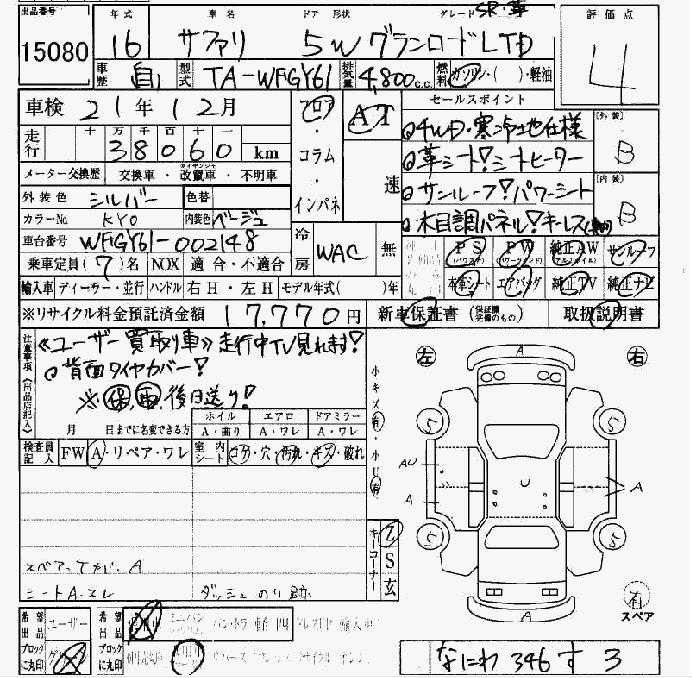 出品番号 年式 車名 ドア 形状 グレード SR・革 評価点
15080 16 サファリ 5W グランロードLTD 4
車歴 自 型式 TA-WFGY61 排気量 4,800 c.c. 燃料 ガソリン・( )・軽油
車検 21年12月 フロア AT セールスポイント
◎4WD・寒冷地仕様 外装 B
走行 十 万 千 百 十 一 コラム ◎革シート!シートヒーター
38060 km
メーター交換歴 交換車・改竄車・不明車 インパネ 速 ◎サンルーフ!パワーシート 内装 B
外装色 シルバー 色替 ◎木目調パネル!キーレス
カラーNo. KY0 内装色 ベージュ
車台番号 WFGY61-002148 冷房 WAC 無 PS PW 純正AW サンルーフ
乗車定員(7)名 NOX 適合・不適合 本革シート エアバッグ 純正TV 純正ナビ
輸入車 ディーラー・並行 ハンドル 右H・左H モデル年式( )年
※リサイクル料金預託済金額 17,770円 新車保証書 取扱説明書
注意事項 《ユーザー買取り車》走行中TV見れます!
◎背面タイヤカバー!
※保,取後日送り!
月 日までに名変できる方 ホイル エアロ ドアミラー
A・曲り A・ワレ A・ワレ
検査員記入 FW A・リペア・ワレ 室内シート コゲ・穴・汚れ・キズ・破れ
小キズ有・小凹有
左 A 右
5 5
AU
A A
5 5
A
有
スペア
コーナー Z S 玄
スペアータイヤ A
シートA.スレ ダッシュのり跡
希望出品ブロックに丸印 ユーザー 希望ブロックに丸印
なにわ 346 す 3